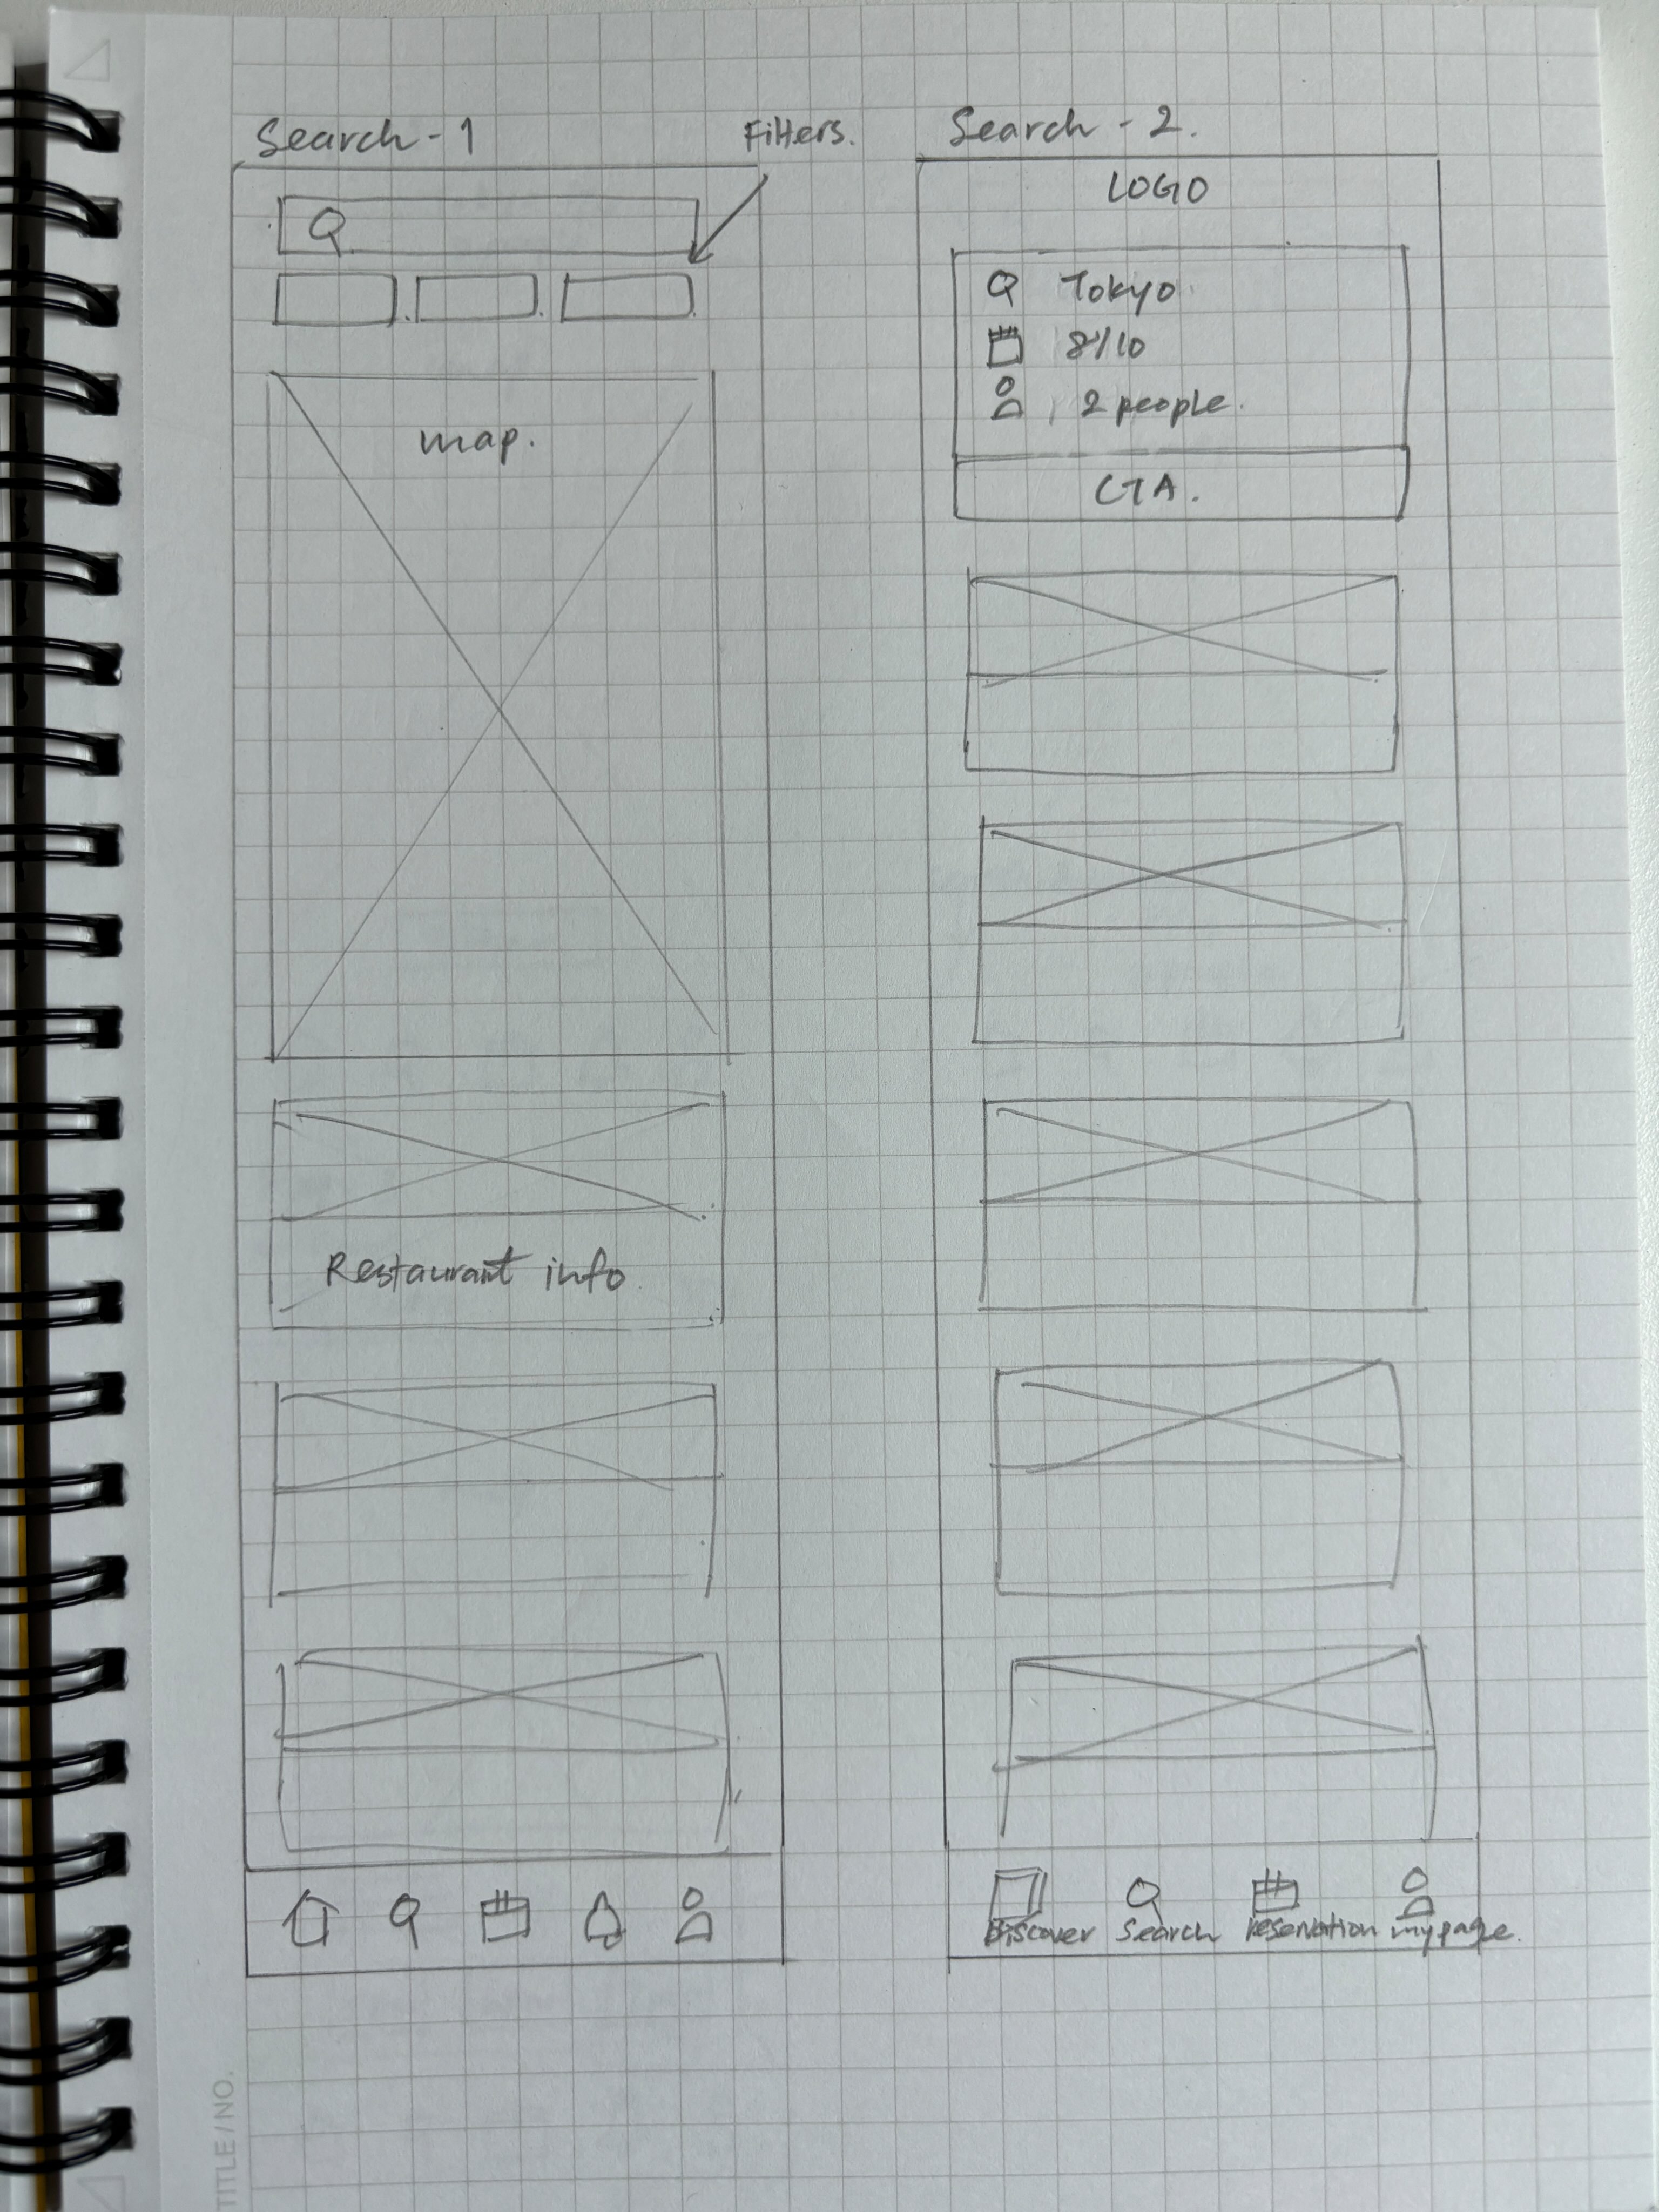 Search - 1
Filters.
map.
Restaurant info
Search - 2.
LOGO
Tokyo
8/10
2 people.
CTA.
Discover Search Reservation mypage.
TITLE / NO.